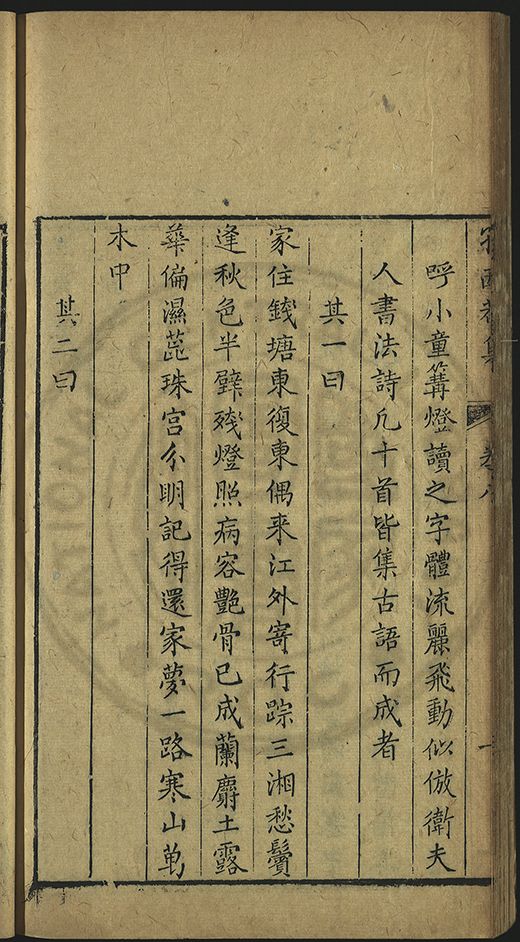 呼小童篝燈讀之字體流麗飛動似倣衛夫
人書法詩凡十首皆集古語而成者
其一曰
家住錢塘東復東偶来江外寄行踪三湘愁鬢
逢秋色半壁殘燈照病容艷骨已成蘭麝土露
華偏濕蕊珠宮分明記得還家夢一路寒山萬
木中
其二曰